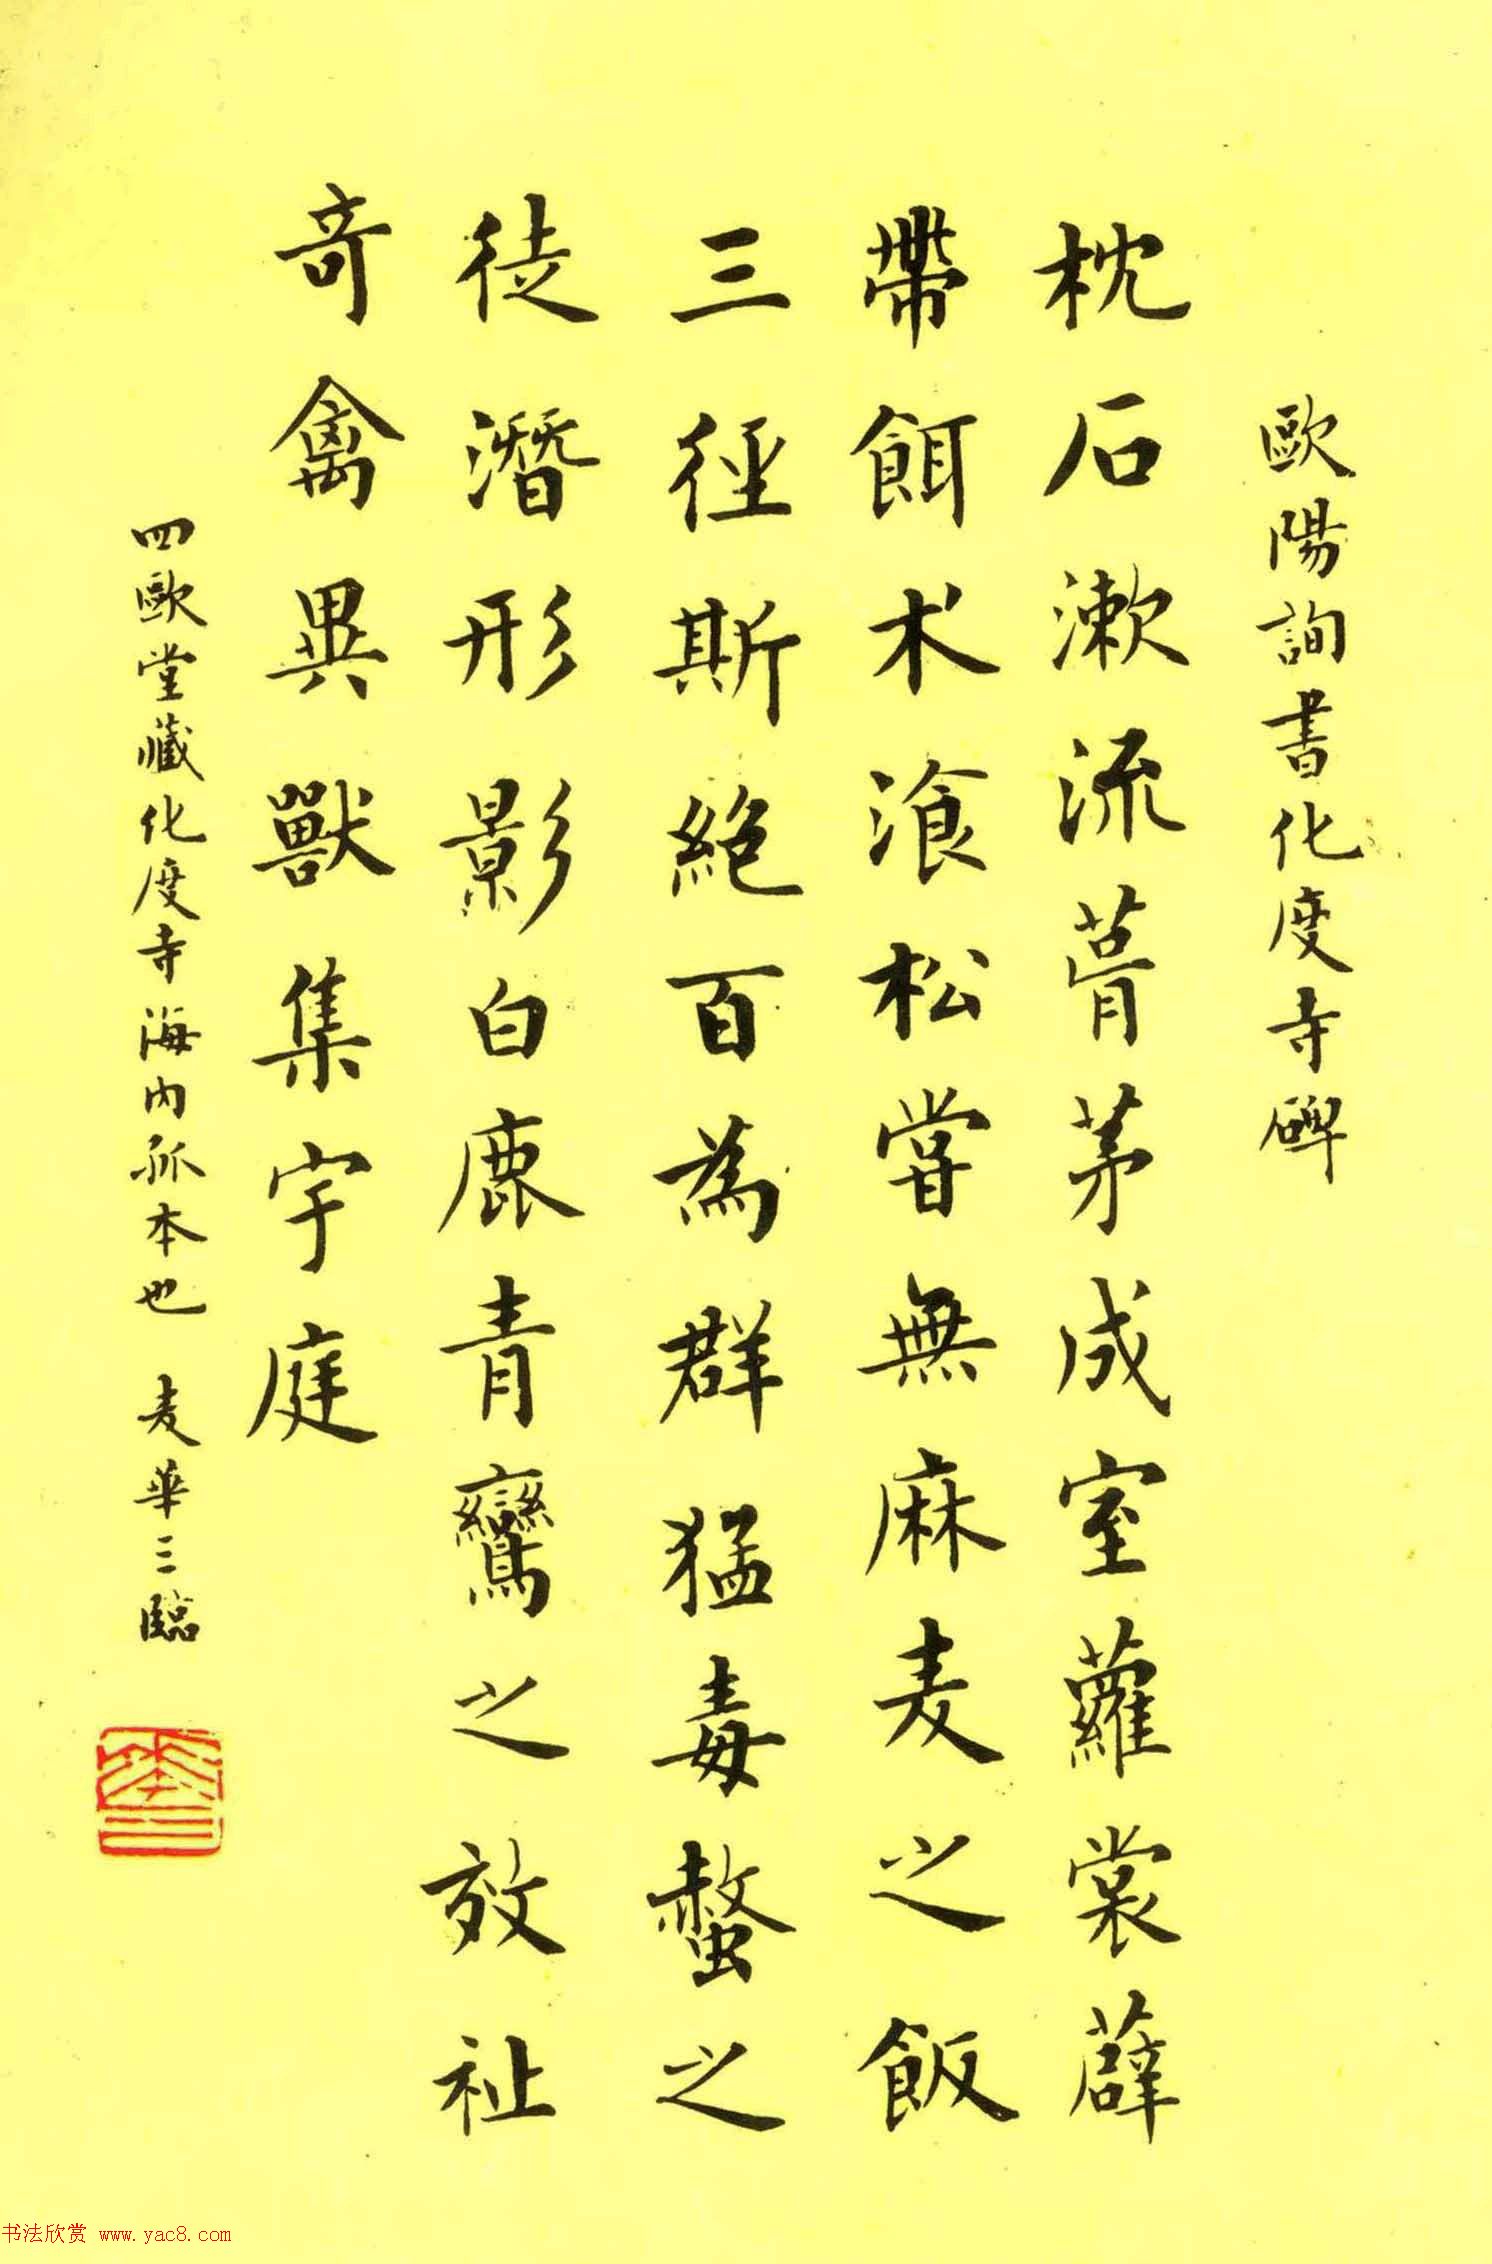 歐陽詢書化度寺碑
枕石漱流葺茅成室蘿裳薜
帶餌术湌松嘗無麻麦之飯
三徑斯絕百為群猛毒螫之
徒潛形影白鹿青鸞之效祉
奇禽異獸集宇庭
四歐堂藏化度寺海內孤本也 麦華三臨
華三
书法欣赏 www.yac8.com